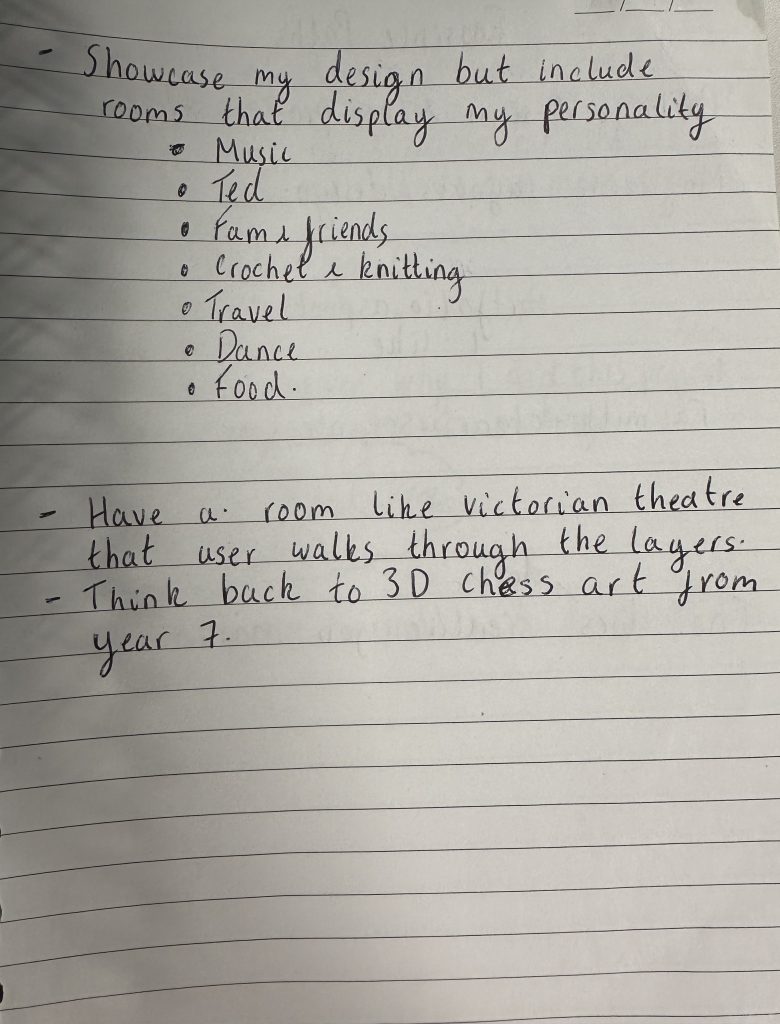 - Showcase my design but include
rooms that display my personality
• Music
• Ted
• Fam & friends
• Crochet & knitting
• Travel
• Dance
• Food.
- Have a room like victorian theatre
that user walks through the layers.
- Think back to 3D chess art from
year 7.